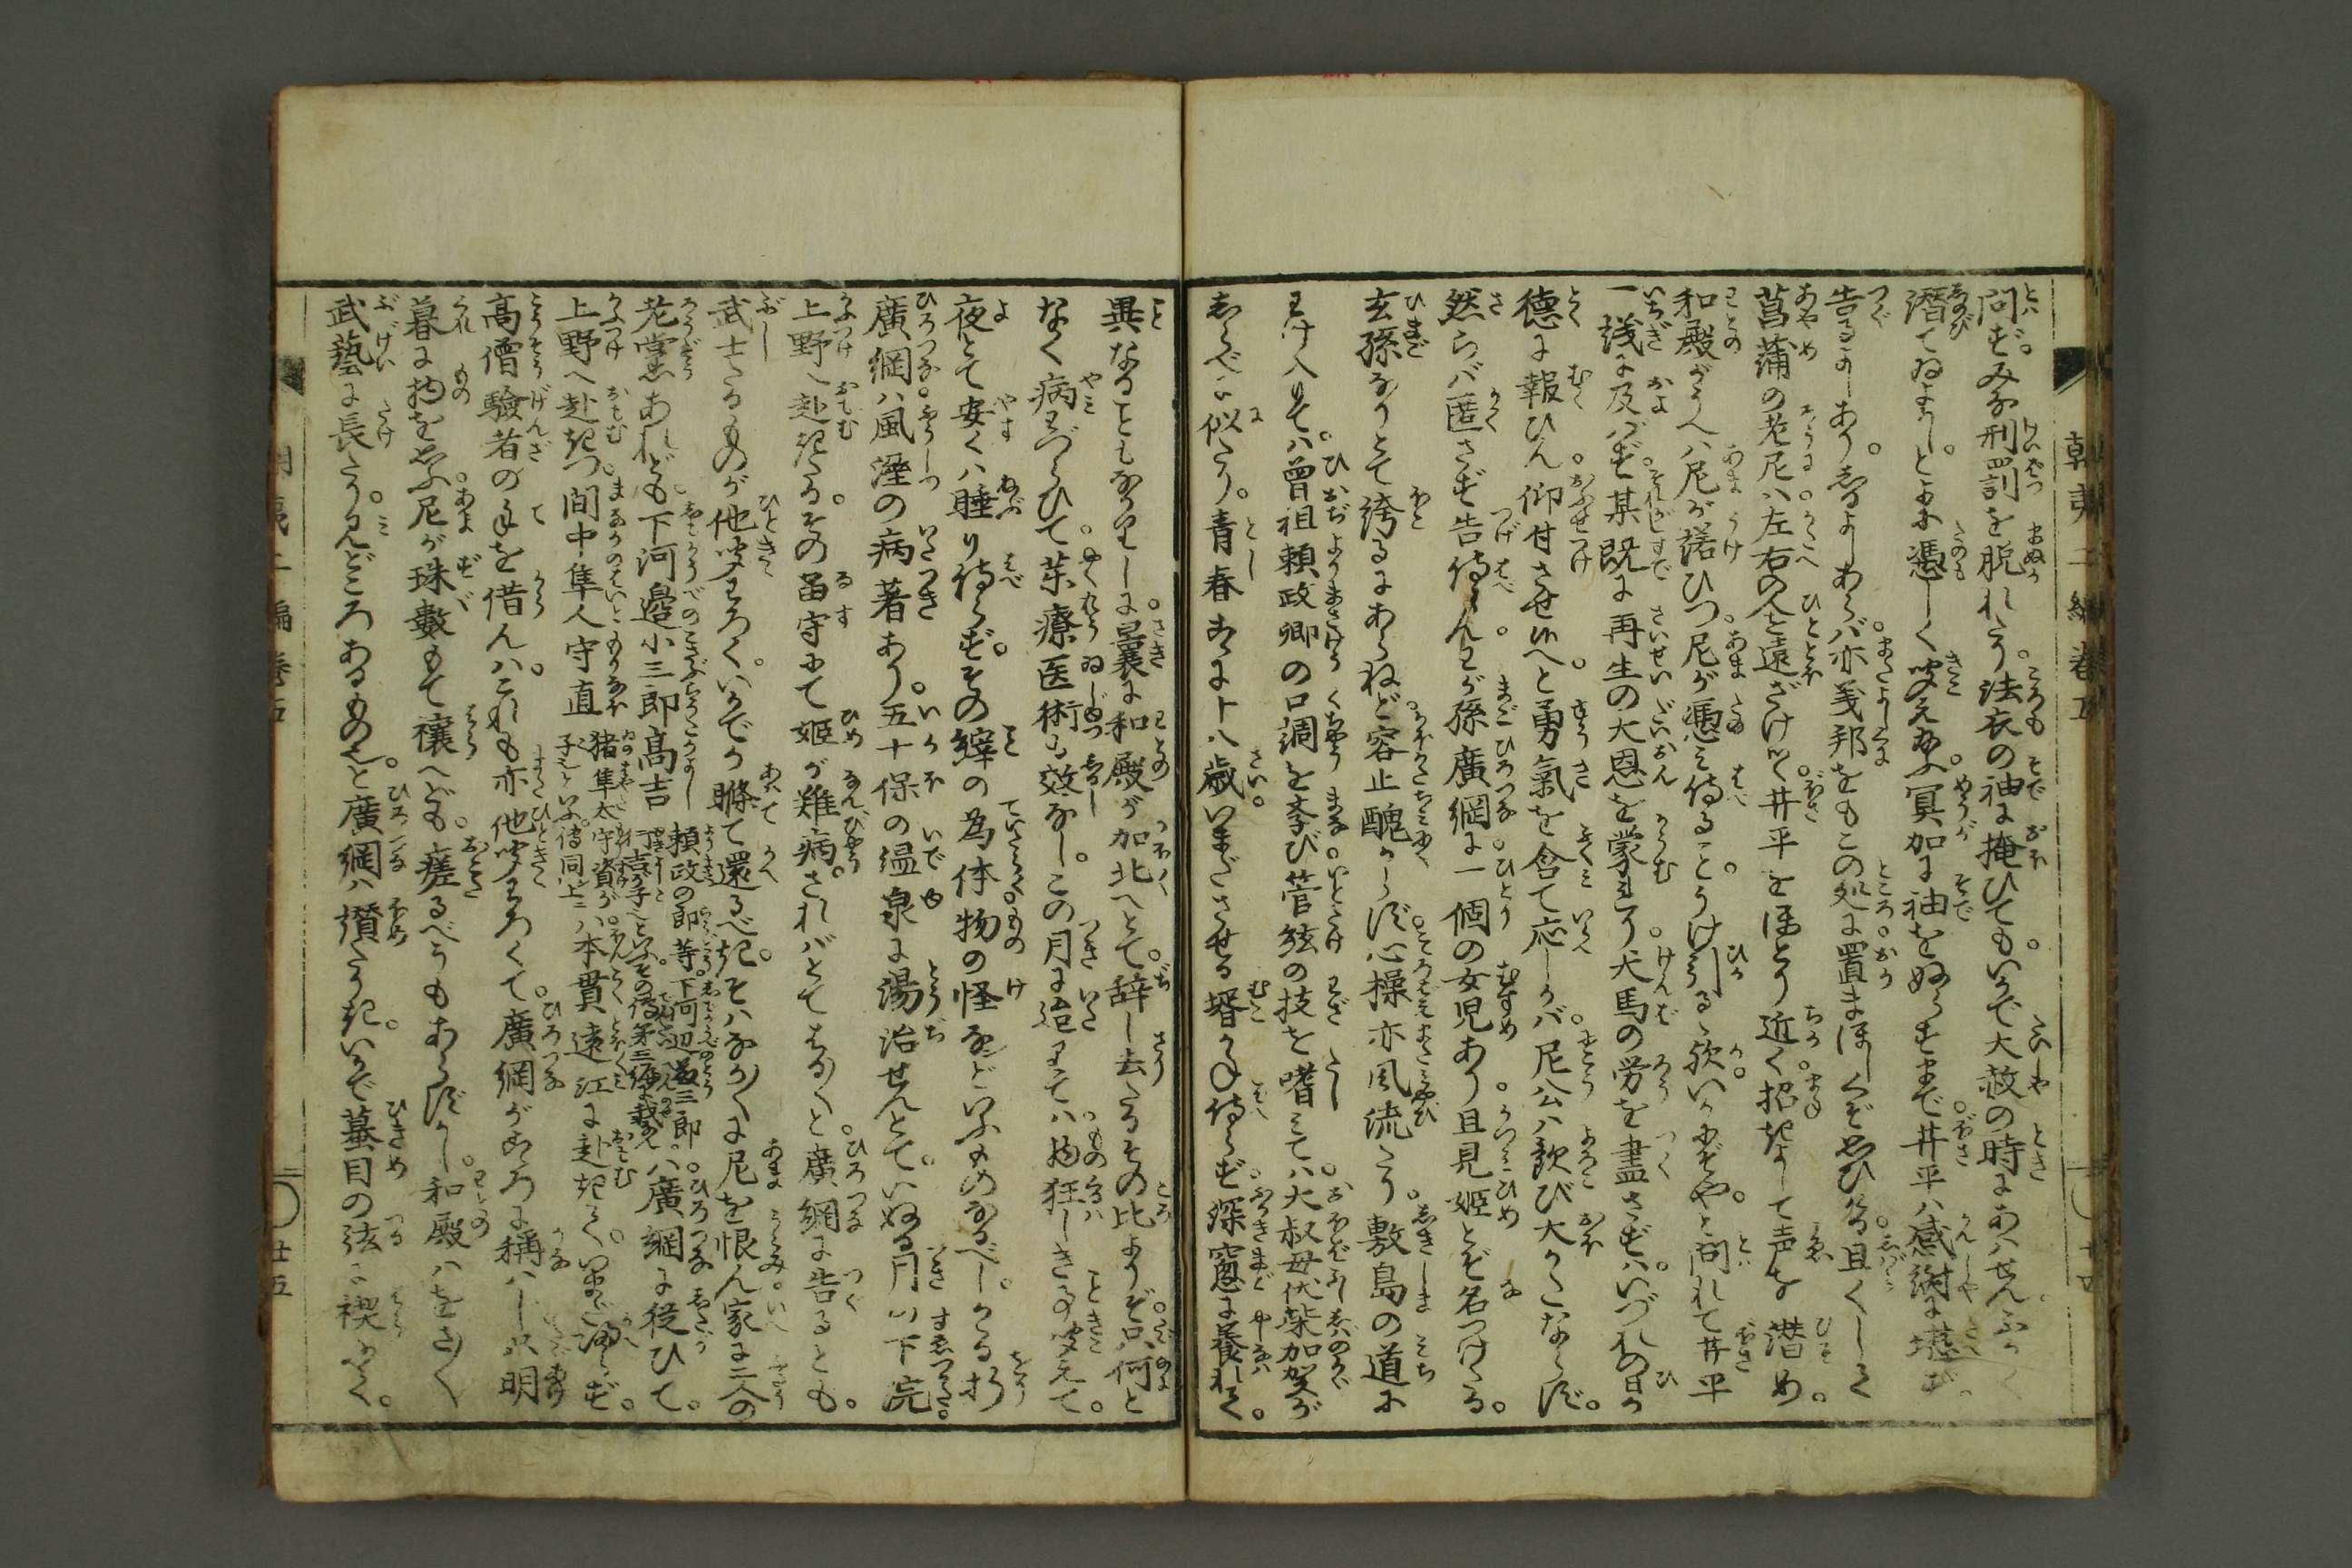 朝夷二編巻五
廿四
問ず。みな刑罰を脱れたり。法衣の袖に掩ひても。いかで大赦の時にあはせんふかく
潜てゐよかし。とよに憑しく聞えれば。冥加に袖をぬらすまで井平ハ感謝に堪ず。
告るよしあり。あるよしあらバ亦義邦をもこの処に置まほしくぞ思ひける。且くして
菖蒲の老尼ハ左右の人を遠ざけつく。井平をほとり近く招きよして声を潜め。
和殿がうへハ尼が諾ひつ。尼が憑み侍ること。うけ引るゝ歟いかにぞや。と問れて井平
一議に及バず。某既に再生の大恩を蒙れり。犬馬の労を盡さずハ。いづれの日か
徳に報ひん。仰付させ給へ。と勇氣を含て応しかバ。尼公ハ歓び大かたならず。
然らバ匿さず告侍らん。わが孫廣綱に。一個の女児あり。且見姫とぞ名つけたる。
玄孫なりとて誇るにあらねど。容止醜からず。心操亦風流たり。敷島の道に
わけ入りてハ。曾祖頼政卿の口調を学び。管絃の技を嗜みてハ。大叔母伏柴加賀が
しらべに似たり。青春既に十八歳。いまださせる壻がね侍らず。深窓に養れて。
異なることもなかりしに。曩に和殿が加北へとて。辞し去たるその比よりぞ。只何と
なく病わづらひて。茶療医術も效なし。この月に造りてハ。物狂しきまで聞えて。
夜とて安くハ睡り侍らず。その縡の為体。物の怪などいふものなるべし。かゝる折
廣綱ハ風溼の病著あり。五十保の温泉に湯治せんとて。いぬる月の下浣
上野へ赴きたる。その畄守にて姫が難病。さればとてはる〲と廣綱に告るとも。
武士たるものが他聞わろく。いかでか滕て還るべき。そハなか〱に尼を恨ん。家に二人の
老黨あれども。下河邉小三郎高吉 頼政の郎等。下河辺藤三郎 清親が子といふ。その傳第三編に載たり。 ハ廣綱に従ひて。
上野へ赴きつ。間中隼人守直 猪隼太守資が 子といふ。傳同上ニ ハ本貫遠江に赴きて。いまだ帰らず。
高僧驗者の手を借んハ。これも亦他聞わろくて。廣綱がこゝろに稱ハじ。只明
暮に物を思ふ。尼が珠數もて禳へども。瘥るべうもあらずかし。和殿ハをさ〱
武藝に長たり。見どころあるものと。廣綱ハ讃たりき。いかで蟇目の弦に禊して。
廿五